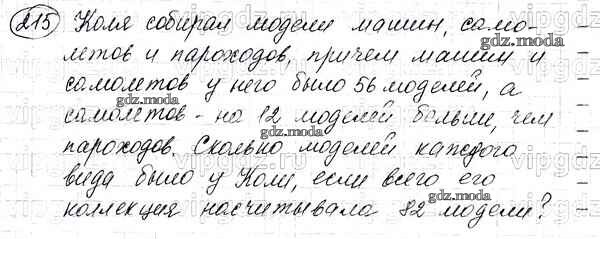 215 Коля собирал модели машин, само-
летов и пароходов, причем машин и
gdz.moda
самолетов у него было 56 моделей, а
gdz.moda
самолетов - на 12 моделей больше, чем
gdz.moda
пароходов. Сколько моделей каждого
vipgdz.ru
вида было у Коли, если всего его
gdz.moda
коллекция насчитывала 82 модели?